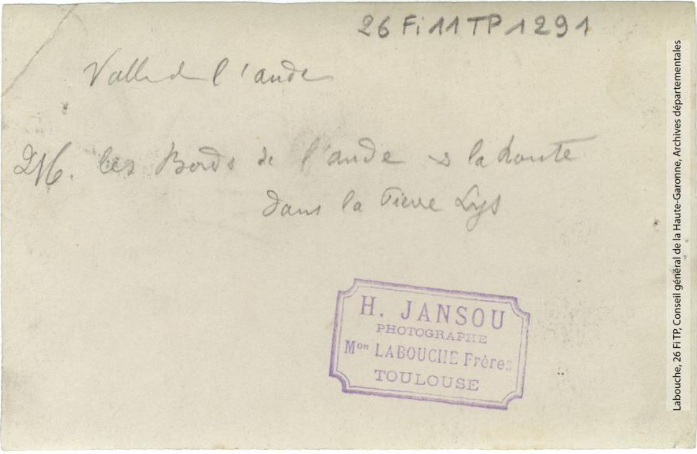 26 Fi 11 TP 1291
Vallée de l'aude
Les Bords de l'aude & la Route
dans la Pierre Lys
H. JANSOU
PHOTOGRAPHE
Mon LABOUCHE Frères
TOULOUSE
Labouche, 26 Fi TP, Conseil général de la Haute-Garonne, Archives départementales